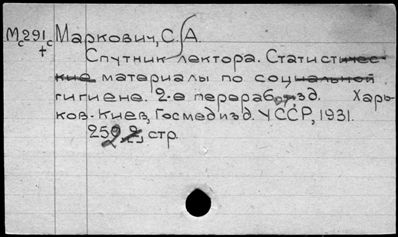 Мс291с Маркович, С. А.
+
Спутник лектора. Статистичес-
кие материалы по социальной
гигиене. 2-е перераб. изд. Харь-
ков-Киев, Госмедизд. УССР, 1931.
259, стр.